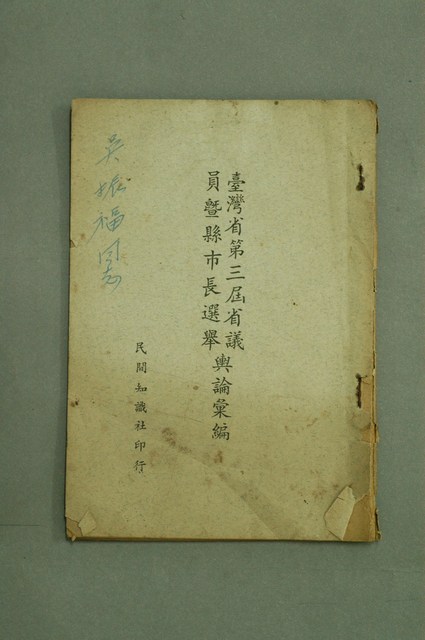 臺灣省第三屆省議
員暨縣市長選舉
輿論彙編
民間知識社印行
吳振福同志